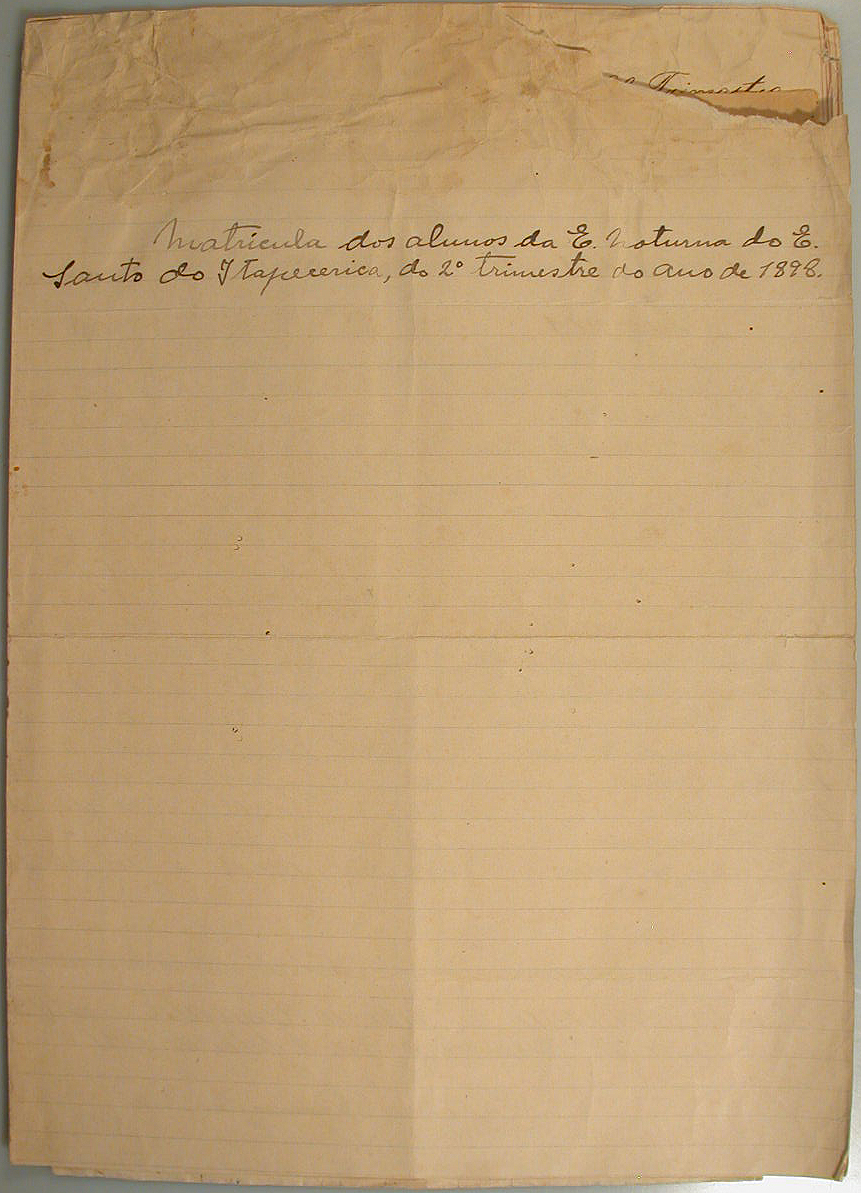 Trimestre
Matricula dos alunos da E. Noturna do E.
Santo do Itapecerica, do 2º trimestre do ano de 1898.